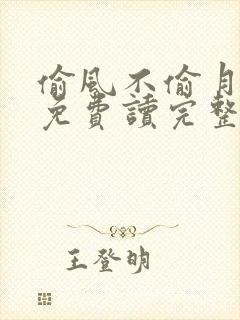 偷風不偷月
免費讀完整
王登明